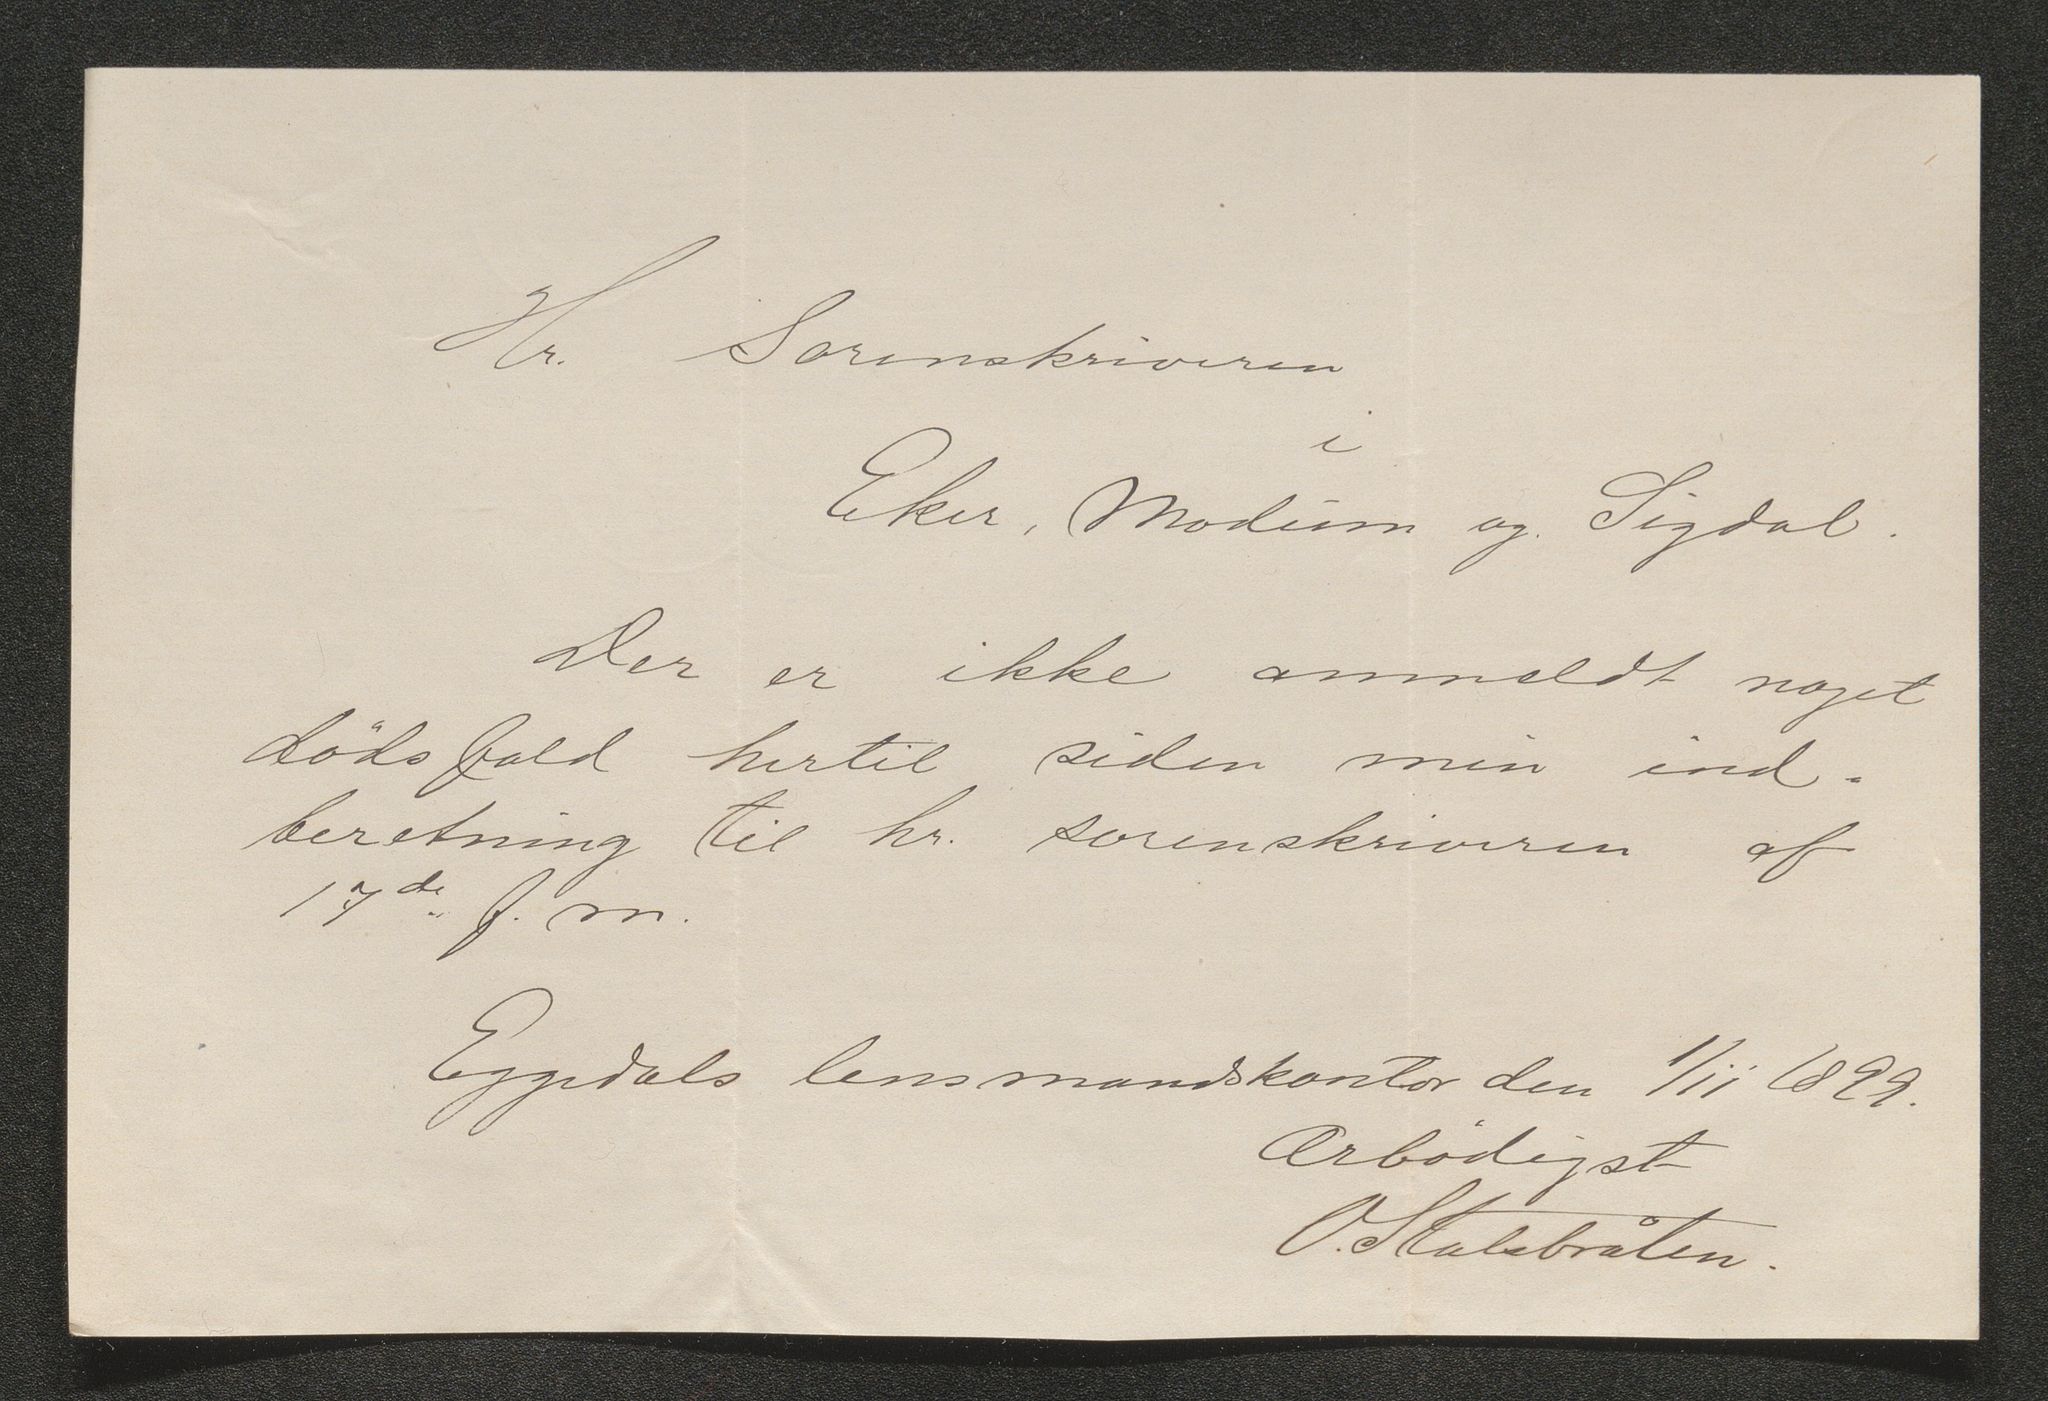 Hr. Sorenskriveren
i
Eker, Modum og Sigdal.
Der er ikke anmeldt noget
dödsfald hertil siden min ind-
beretning til hr. sorenskriveren af
17de f. m.
Eggedals lensmandskontor den 1/11 1899.
Ærbödigst
O. Stalsbråten.